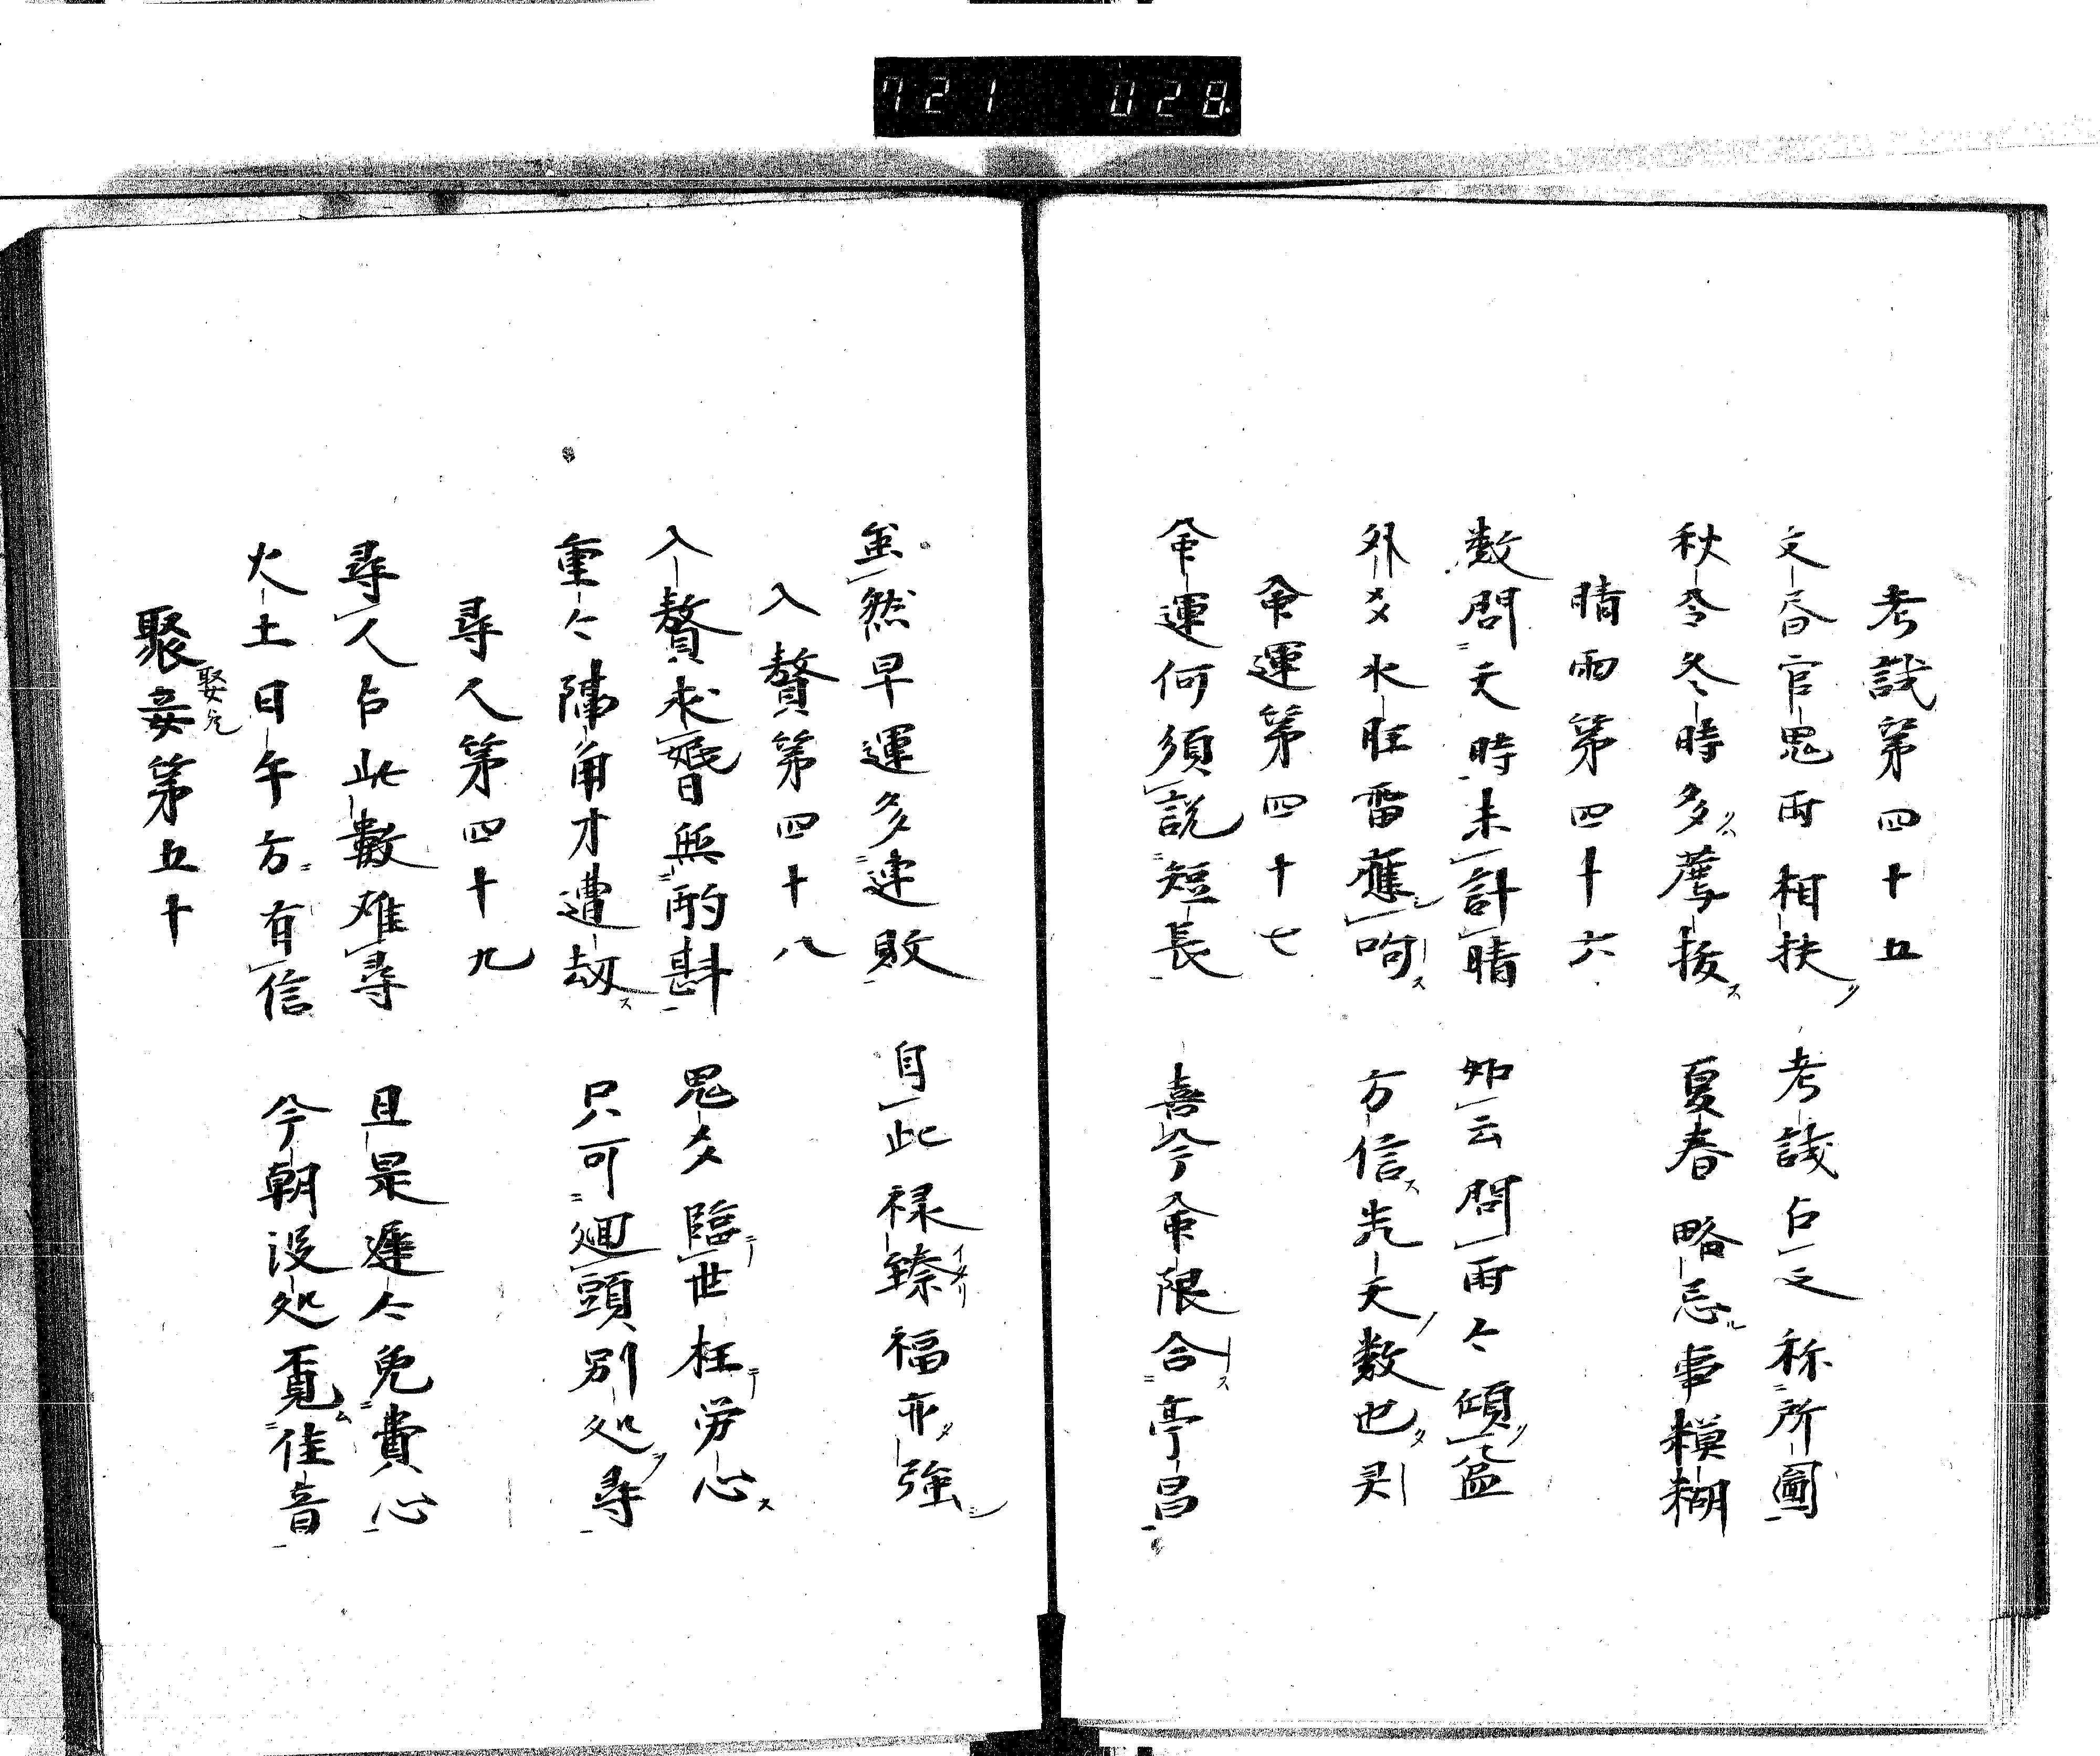 721 028
考試第四十五
文昏官鬼両相扶 考試占之称所圖
秋令冬時多薦抜 夏春略忌事糢糊
晴雨第四十六
数問天時未計晴 如云問雨々傾盆
外爻水旺雷應 方信先天数也灵
命運第四十七
命運何須説短長 喜今命限合亭昌
虽然早運多連敗 自此禄臻福亦強
入贅第四十八
入贅求婚無酌斟 鬼爻臨世枉労心
重々陣角才遭劫 只可廻頭別処尋
尋人第四十九
尋人占此數难尋 且是遲々免費心
火土日午方有信 今朝没処覓佳音
聚妾第五十
娶乞